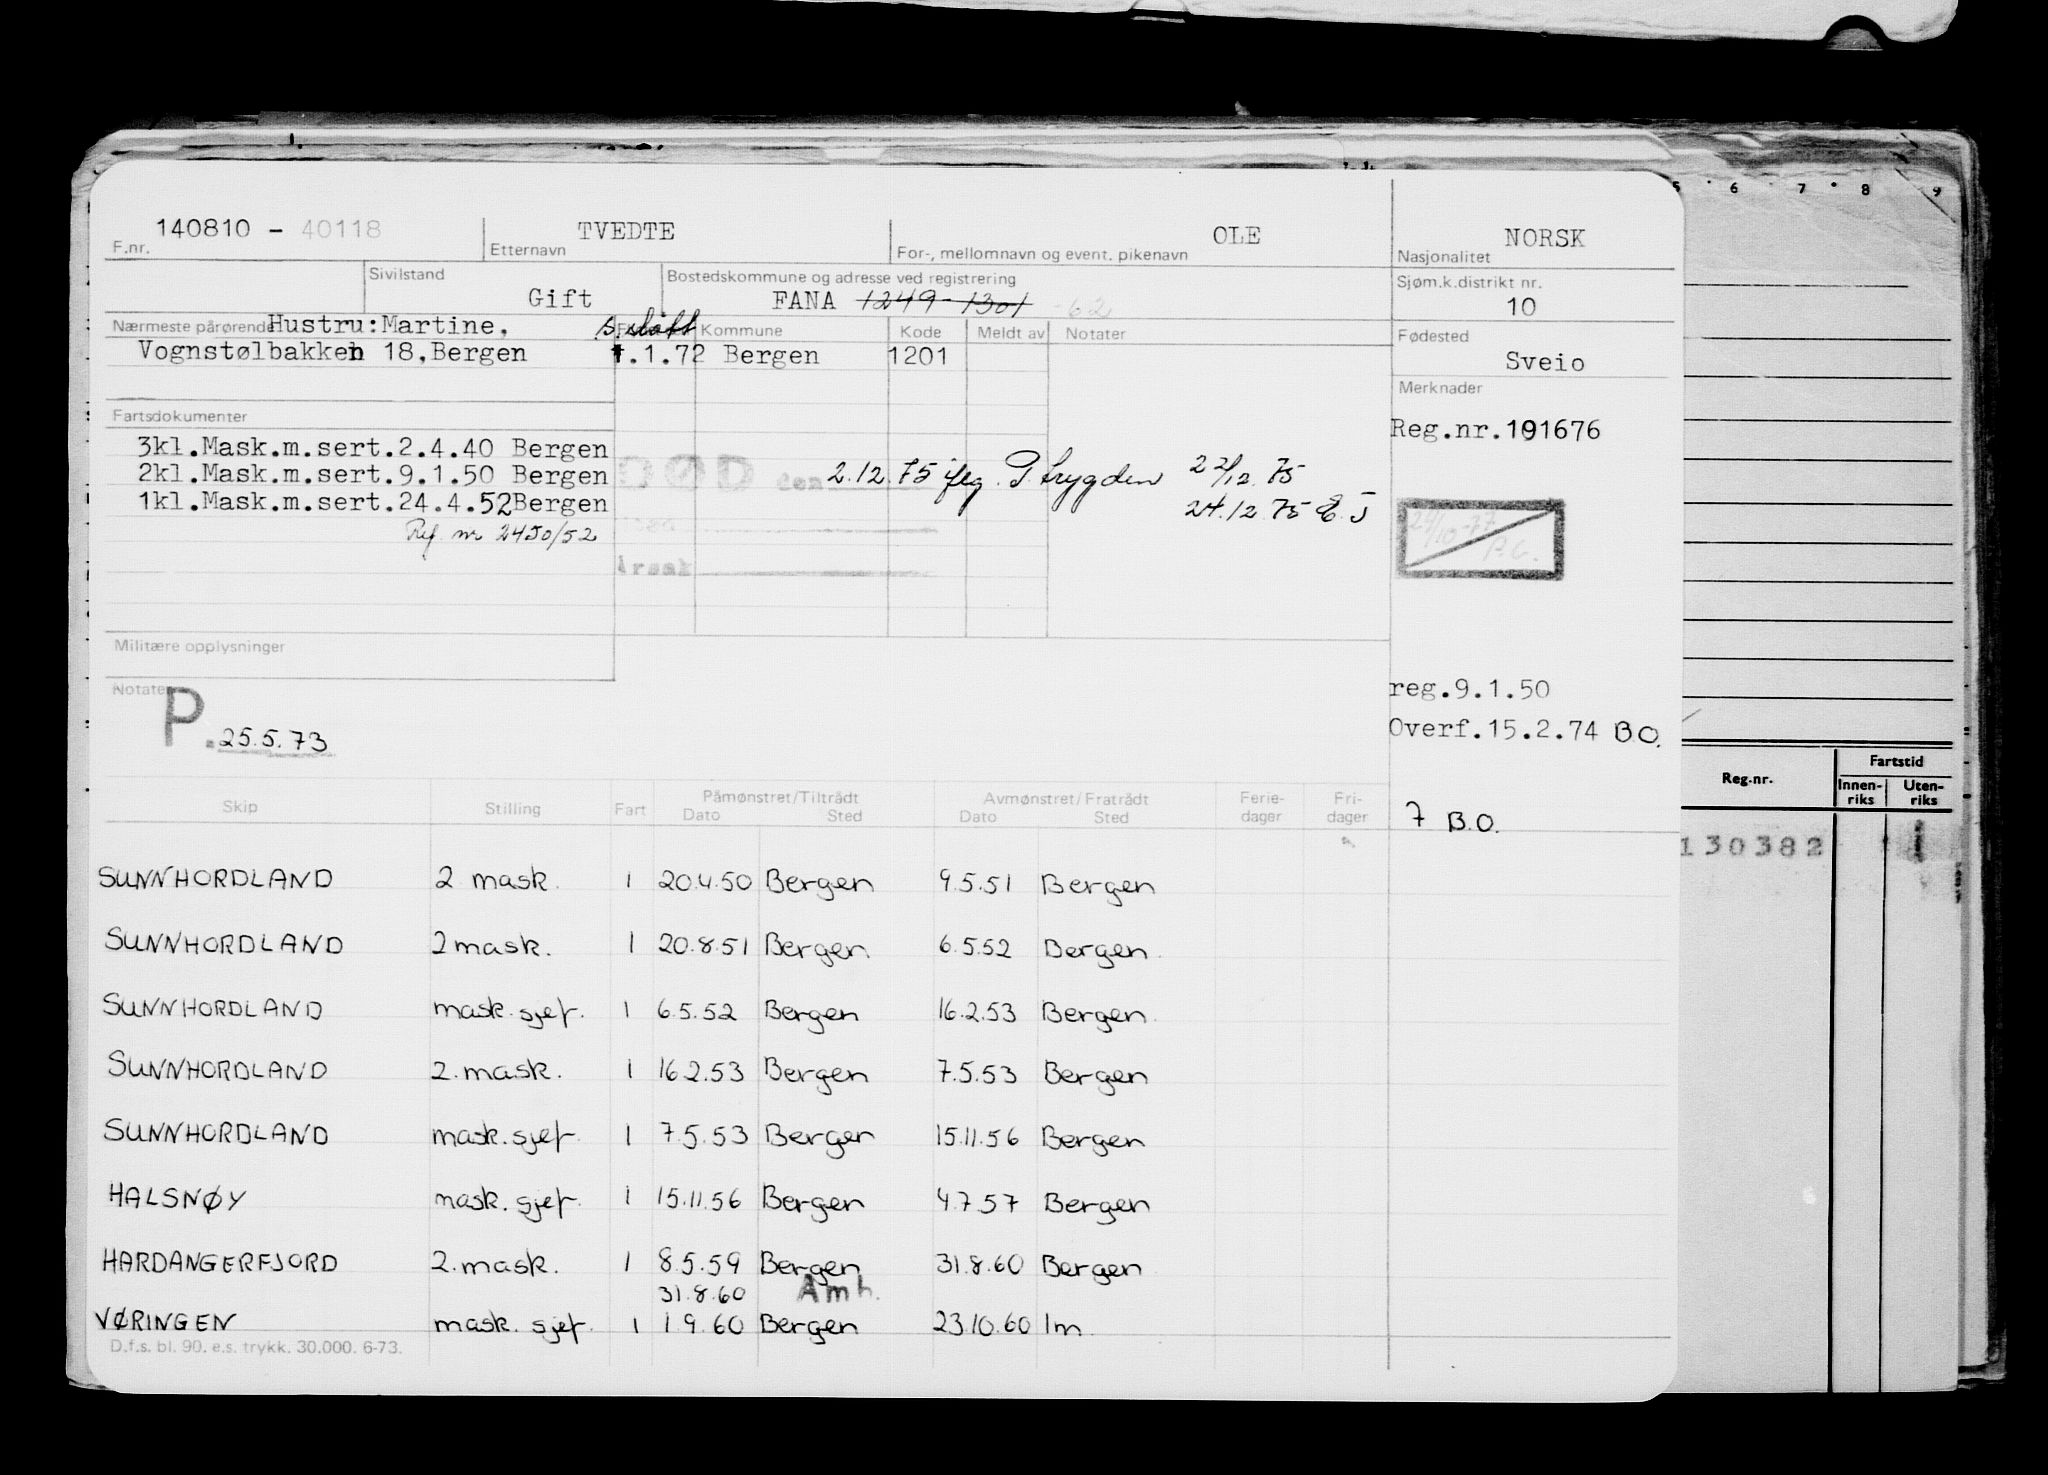 5 6 7 8 9
140810 - 40118 TVEDTE OLE NORSK
F.nr. Etternavn For-, mellomnavn og event. pikenavn Nasjonalitet
Sivilstand Bostedskommune og adresse ved registrering Sjøm.k.distrikt nr.
Gift FANA 1249-1301 -62 10
Nærmeste pårørende Hustru:Martine, Kommune Kode Meldt av Notater Fødested
Vognstølbakken 18,Bergen 1.1.72 Bergen 1201 Sveio
Merknader
Fartsdokumenter
Reg.nr.191676
3kl.Mask.m.sert.2.4.40 Bergen
2kl.Mask.m.sert.9.1.50 Bergen DØD den 2.12.75 iflg. P.trygden 22/12.75
1kl.Mask.m.sert.24.4.52Bergen 24.12.75 E.J
Ref. nr 2450/52
27/10-77 P.G.
Årsak
Militære opplysninger
Notater
P. 25.5.73
reg.9.1.50
Overf.15.2.74 B.O.
Reg.nr. Fartstid
Innen-riks Uten-riks
Skip Stilling Fart Påmønstret/Tiltrådt Avmønstret/Fratrådt Ferie-dager Fri-dager
Dato Sted Dato Sted
7 B.O.
130382
SUNNHORDLAND 2 mask. 1 20.4.50 Bergen 9.5.51 Bergen
SUNNHORDLAND 2 mask. 1 20.8.51 Bergen 6.5.52 Bergen
SUNNHORDLAND mask. sjef. 1 6.5.52 Bergen 16.2.53 Bergen
SUNNHORDLAND 2. mask. 1 16.2.53 Bergen 7.5.53 Bergen
SUNNHORDLAND mask. sjef. 1 7.5.53 Bergen 15.11.56 Bergen
HALSNØY mask. sjef. 1 15.11.56 Bergen 4.7.57 Bergen
HARDANGERFJORD 2. mask. 1 8.5.59 Bergen 31.8.60 Bergen
31.8.60 Amh.
VØRINGEN mask. sjef. 1 1.9.60 Bergen 23.10.60 Im.
D.f.s. bl. 90. e.s. trykk. 30.000. 6-73.